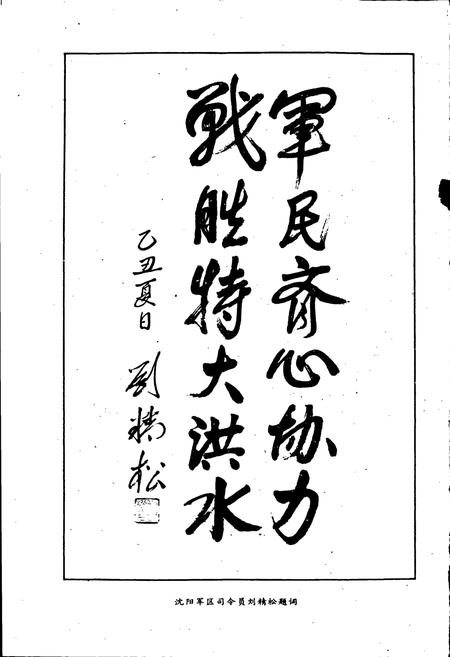 軍民齐心协力
戰胜特大洪水
乙丑夏日
刘精松
沈阳军区司令员刘精松题词